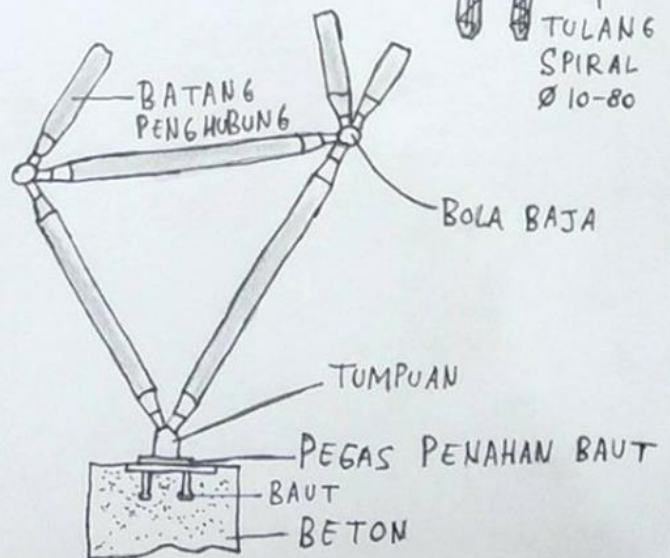 TULANG
SPIRAL
Ø 10-80
BATANG
PENGHUBUNG
BOLA BAJA
TUMPUAN
PEGAS PENAHAN BAUT
BAUT
BETON